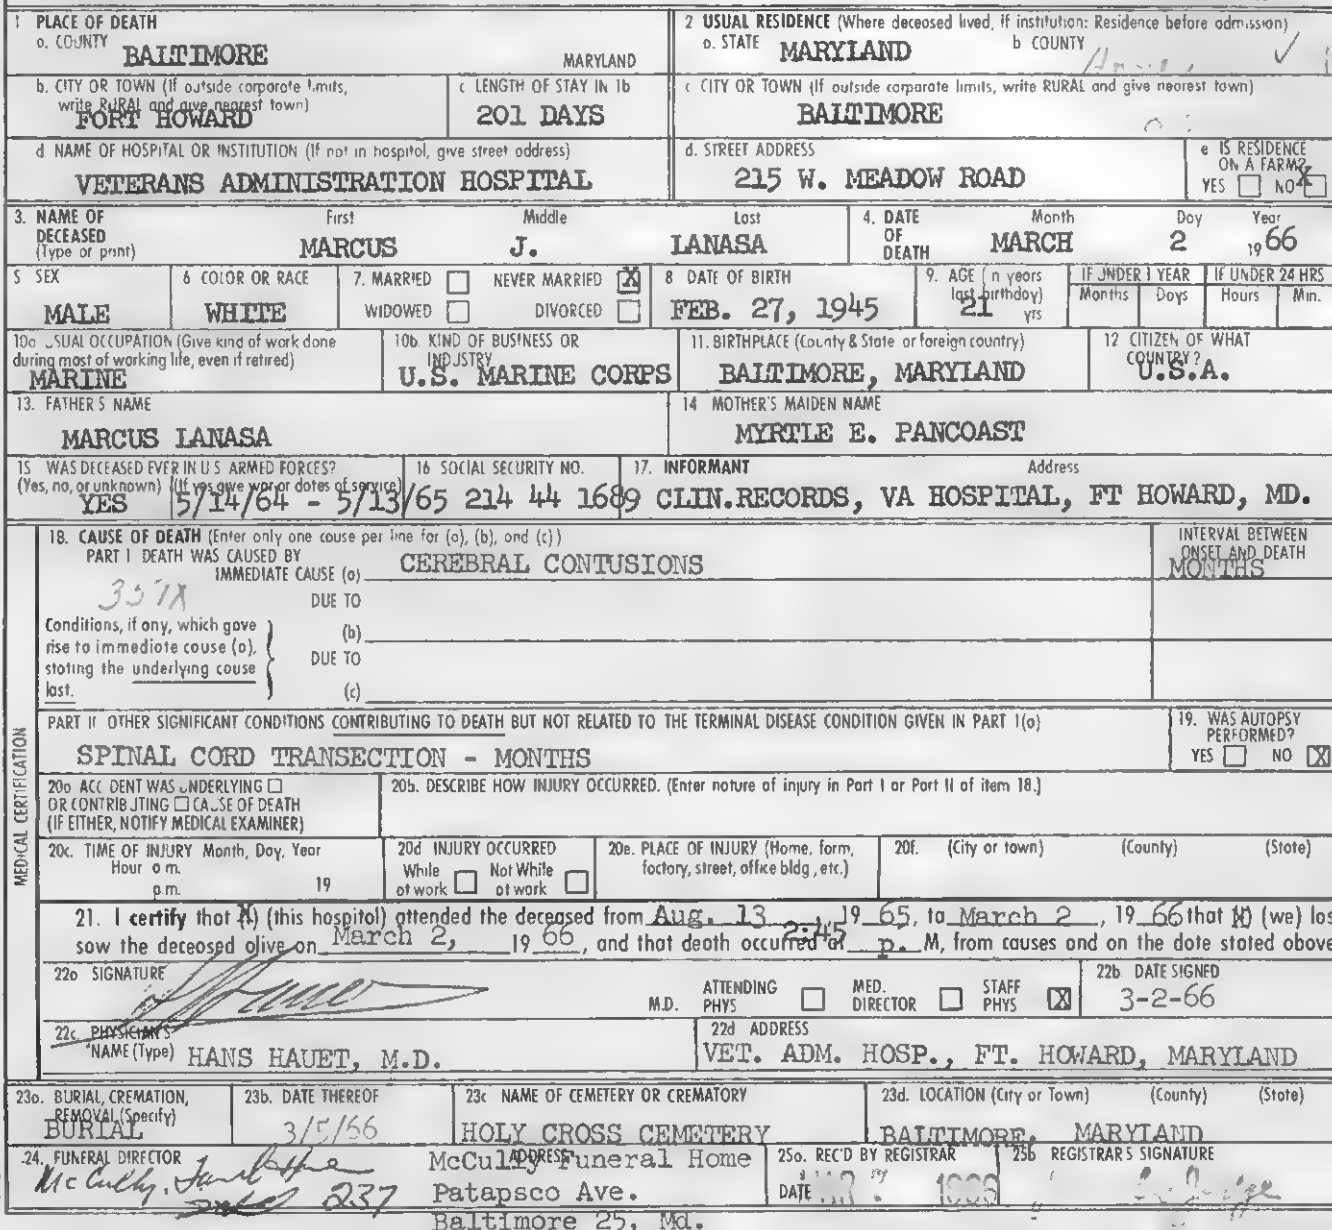 1 PLACE OF DEATH
a. COUNTY
BALTIMORE MARYLAND
2 USUAL RESIDENCE (Where deceased lived, If institution: Residence before admission)
a. STATE b COUNTY
MARYLAND
b. CITY OR TOWN (If outside corporate limits, write RURAL and give nearest town)
FORT HOWARD
c LENGTH OF STAY IN 1b
201 DAYS
c CITY OR TOWN (If outside corporate limits, write RURAL and give nearest town)
BALTIMORE
d. NAME OF HOSPITAL OR INSTITUTION (If not in hospital, give street address)
VETERANS ADMINISTRATION HOSPITAL
d. STREET ADDRESS
215 W. MEADOW ROAD
e IS RESIDENCE ON A FARM?
YES NO X
3. NAME OF DECEASED (Type or print)
First Middle Last
MARCUS J. LANASA
4. DATE OF DEATH
Month Day Year
MARCH 2 19 66
5 SEX
MALE
6 COLOR OR RACE
WHITE
7. MARRIED NEVER MARRIED X
WIDOWED DIVORCED
8 DATE OF BIRTH
FEB. 27, 1945
9. AGE (In years last birthday)
21 yrs
IF UNDER 1 YEAR
Months Days
IF UNDER 24 HRS
Hours Min.
10a USUAL OCCUPATION (Give kind of work done during most of working life, even if retired)
MARINE
10b. KIND OF BUSINESS OR INDUSTRY
U.S. MARINE CORPS
11. BIRTHPLACE (County & State or foreign country)
BALTIMORE, MARYLAND
12 CITIZEN OF WHAT COUNTRY?
U.S.A.
13. FATHER'S NAME
MARCUS LANASA
14 MOTHER'S MAIDEN NAME
MYRTLE E. PANCOAST
15 WAS DECEASED EVER IN U S ARMED FORCES?
(Yes, no, or unknown) (If yes give war or dates of service)
YES 5/14/64 - 5/13/65
16 SOCIAL SECURITY NO.
214 44 1689
17. INFORMANT Address
CLIN.RECORDS, VA HOSPITAL, FT HOWARD, MD.
MEDICAL CERTIFICATION
18. CAUSE OF DEATH (Enter only one cause per line for (a), (b), and (c))
PART I DEATH WAS CAUSED BY
IMMEDIATE CAUSE (a) CEREBRAL CONTUSIONS
INTERVAL BETWEEN ONSET AND DEATH
MONTHS
Conditions, if any, which gave rise to immediate cause (a), stating the underlying cause last.
DUE TO
(b)
DUE TO
(c)
PART II OTHER SIGNIFICANT CONDITIONS CONTRIBUTING TO DEATH BUT NOT RELATED TO THE TERMINAL DISEASE CONDITION GIVEN IN PART I(a)
SPINAL CORD TRANSECTION - MONTHS
19. WAS AUTOPSY PERFORMED?
YES NO X
20a ACCIDENT WAS UNDERLYING
OR CONTRIBUTING CAUSE OF DEATH
(IF EITHER, NOTIFY MEDICAL EXAMINER)
20b. DESCRIBE HOW INJURY OCCURRED. (Enter nature of injury in Part I or Part II of item 18.)
20c. TIME OF INJURY Month, Day, Year
Hour a m.
p.m. 19
20d INJURY OCCURRED
While at work Not While at work
20e. PLACE OF INJURY (Home, farm, factory, street, office bldg, etc.)
20f. (City or town) (County) (State)
21. I certify that (X) (this hospital) attended the deceased from Aug. 13, 19 65, to March 2, 19 66 that (X) (we) las
saw the deceased alive on March 2, 19 66, and that death occurred at 2:45 p. M, from causes and on the date stated above
22a SIGNATURE
M.D. ATTENDING PHYS MED. DIRECTOR STAFF PHYS X
22b. DATE SIGNED
3-2-66
22c. PHYSICIAN'S NAME (Type) HANS HAUET, M.D.
22d ADDRESS
VET. ADM. HOSP., FT. HOWARD, MARYLAND
23a. BURIAL, CREMATION, REMOVAL (Specify)
BURIAL
23b. DATE THEREOF
3/5/66
23c NAME OF CEMETERY OR CREMATORY
HOLY CROSS CEMETERY
23d. LOCATION (City or Town) (County) (State)
BALTIMORE, MARYLAND
24. FUNERAL DIRECTOR
McCully, 237
ADDRESS
McCully Funeral Home
Patapsco Ave.
Baltimore 25, Md.
25a. REC'D BY REGISTRAR
DATE
25b REGISTRAR'S SIGNATURE